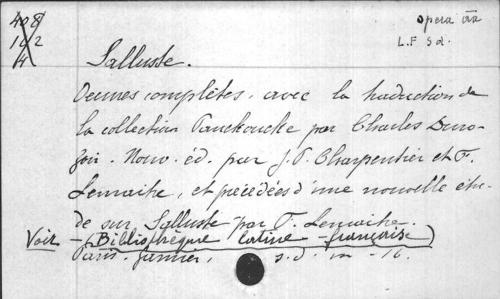 408
162
4
opera
L.F 5 d.
Salluste.
Oeuvres complètes. avec la traduction de
la collection Panckoucke par Charles Duro-
zoir. Nouv. éd. par J. P. Charpentier et F.
Lemaitre, et précédées d'une nouvelle étu-
de sur Salluste par F. Lemaitre.
Voir - (Bibliothèque latine - française)
Paris. Garnier, s.d. in - 16.